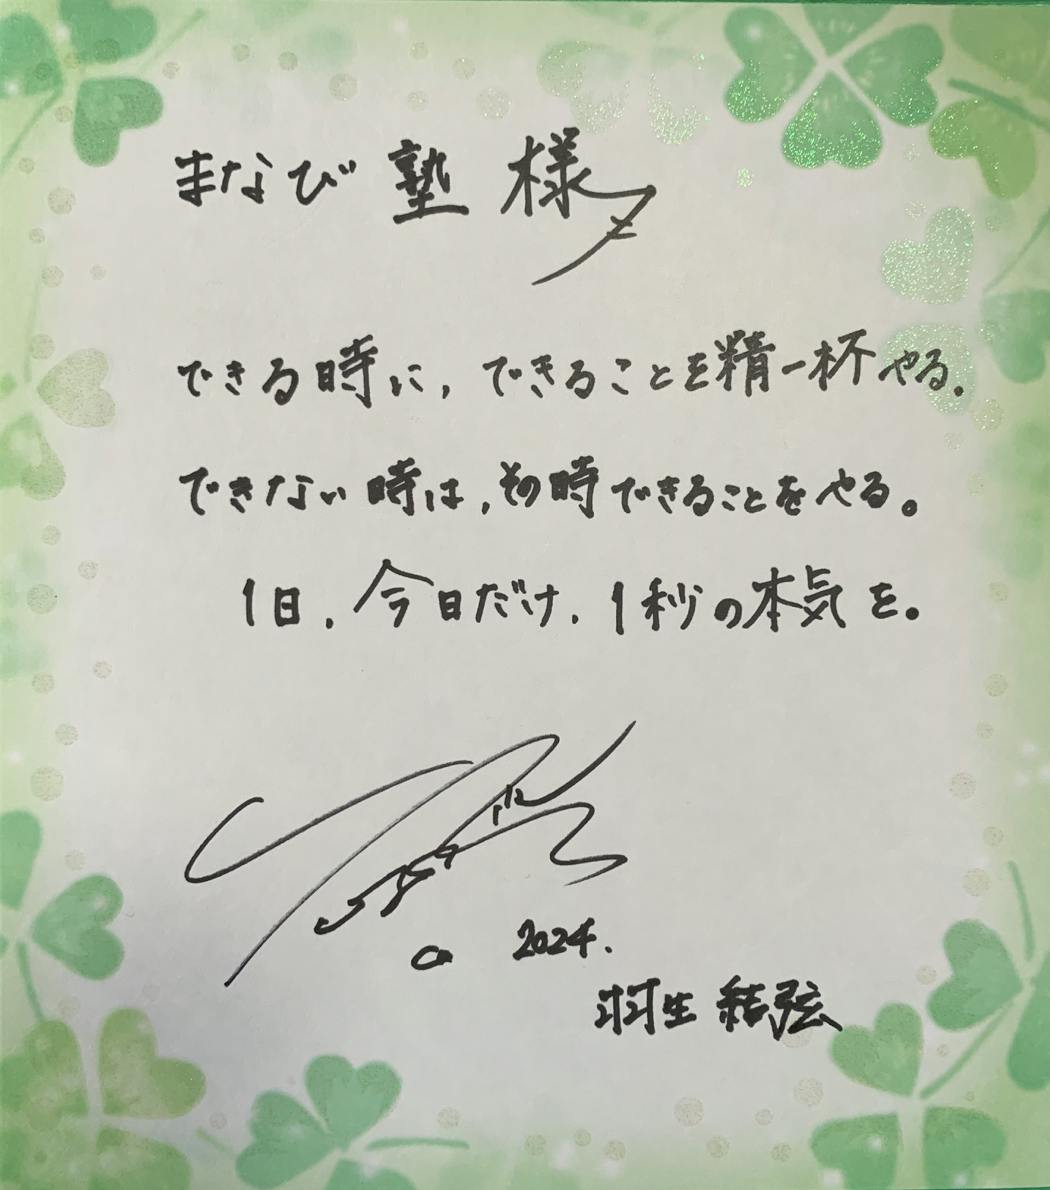 まなび塾様
できる時に，できることを精一杯やる．
できない時は，その時できることをやる。
1日，今日だけ，1秒の本気を。
2024.
羽生結弦